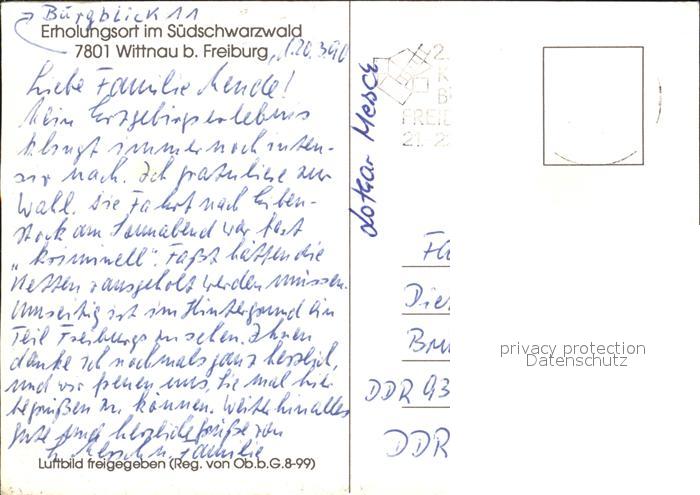 Burgblick 11
Erholungsort im Südschwarzwald
7801 Wittnau b. Freiburg, 20.3.90
Liebe Familie Mende!
Mein Erzgebirgserlebnis
klingt immer noch inten-
siv nach. Ich gratuliere zur
Wahl. Die Fahrt nach Eiben-
stock am Sonnabend war fast
„kriminell". Fast hätten die
Ketten rausgeholt werden müssen.
Umseitig ist im Hintergrund ein
Teil Freiburgs zu sehen. Ihnen
danke ich nochmals ganz herzlich,
und wir freuen uns, Sie mal hier
begrüßen zu können. Weiterhin alles
Gute und herzliche Grüße von
L. Mesch u. Familie
Luftbild freigegeben (Reg. von Ob.b.G.8-99)
Lothar
2.
FREI
21.
Die
DDR 93
DDR
privacy protection
Datenschutz